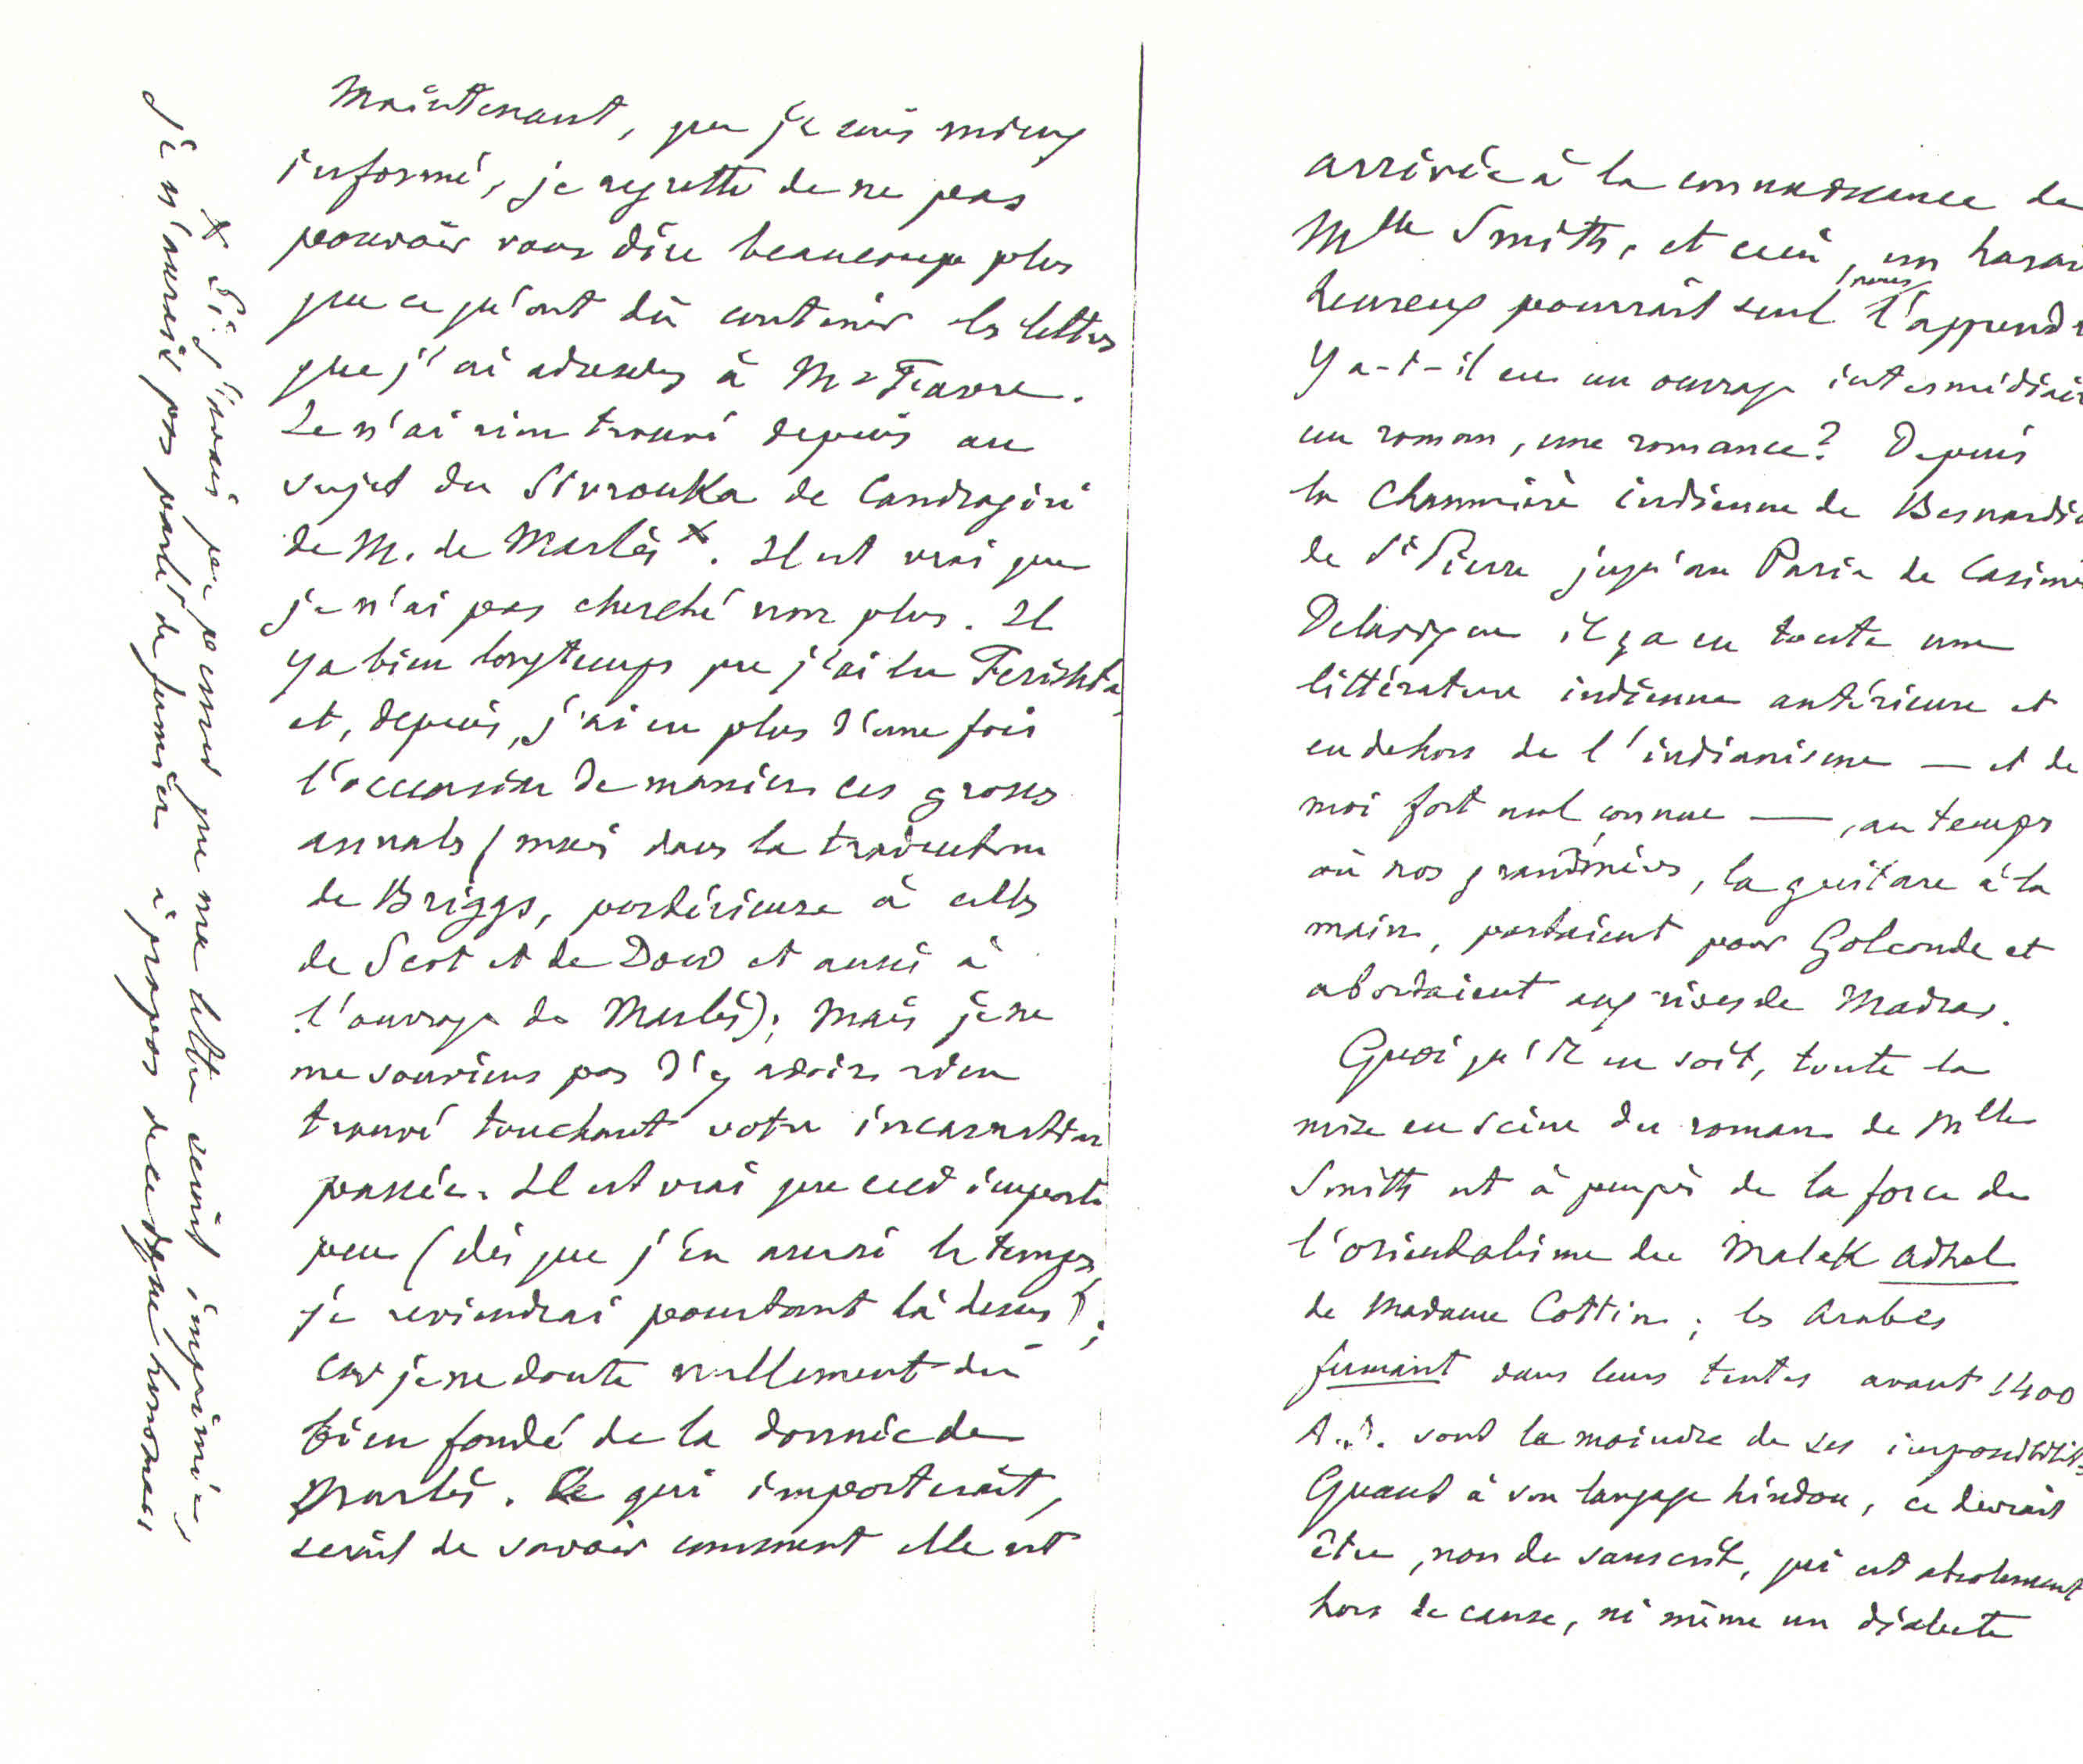 Maintenant, que je suis mieux
informé, je regrette de ne pas
pouvoir vous dire beaucoup plus
que ce qu'ont dû contenir les lettres
que j'ai adressées à Mr Favre.
Je n'ai rien trouvé depuis au
sujet du Sivrouka de Candragiri
de M. de Marlès x. Il est vrai que
je n'ai pas cherché non plus. Il
y a bien longtemps que j'ai lu Ferishta,
et, depuis, j'ai eu plus d'une fois
l'occasion de manier ces grosses
annales (mais dans la traduction
de Briggs, postérieure à celles
de Scot et de Dow et aussi à
l'ouvrage de Marlès); mais je ne
me souviens pas d'y avoir rien
trouvé touchant votre incarnation
passée. Il est vrai que ceci importe
peu (dès que j'en aurai le temps,
je reviendrai pourtant là dessus);
car je ne doute nullement du
bien fondé de la donnée de
Marlès. Ce qui importerait,
serait de savoir comment elle est
x Si j'avais pu penser que ma lettre serait imprimée,
je n'aurais pas parlé de fumier à propos de ce digne homme.
arrivée à la connaissance de
Mlle Smith, et ceci, un hasar
heureux pourrait seul nous l'apprend
Y a-t-il eu un ouvrage intermédiair
un roman, une romance? Depuis
la Chaumière indienne de Bernardi
de St Pierre jusqu'au Paria de Casimi
Delavigne il y a eu toute une
littérature indienne antérieure et
en dehors de l'indianisme — et de
moi fort mal connue —, au temps
où nos grand'mères, la guitare à la
main, partaient pour Golconde et
abordaient aux rives de Madras.
Quoi qu'il en soit, toute la
mise en scène du roman de Mlle
Smith est à peu près de la force de
l'orientalisme du Malek Adhel
de Madame Cottin; les Arabes
fumant dans leurs tentes avant 1400
A.D. sont la moindre de ses impossibilités
Quant à son langage hindou, ce devrait
être, non du sanscrit, qui est absolument
hors de cause, ni même un dialecte